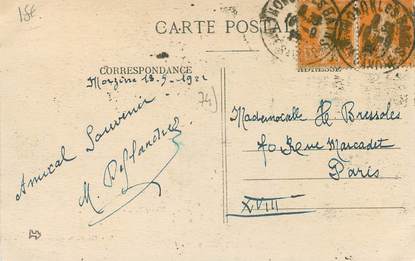 15€
CARTE POSTALE
CORRESPONDANCE
ADRESSE
Morzine 18-9-1922
74)
Amical Souvenir
M. Deflandre
Mademoiselle H Bressoles
70 Rue Marcadet
Paris
XVIII